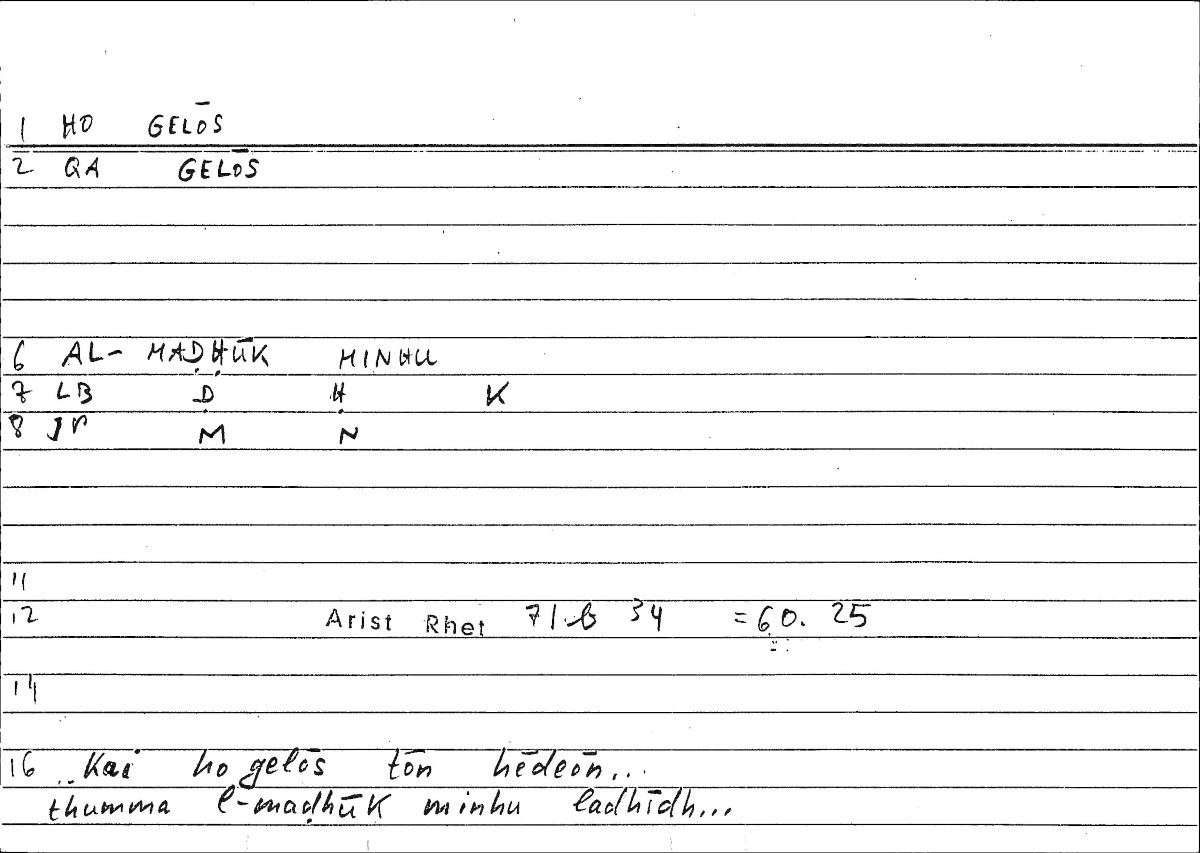 1 HO GELŌS
2 QA GELŌS
6 AL- MAḌḤŪK MINHU
7 LB Ḍ Ḥ K
8 JP M N
11
12 Arist Rhet 71b 34 =60. 25
14
16 Kai ho gelōs tōn hēdeōn...
thumma l-maḍhūk minhu ladhīdh...